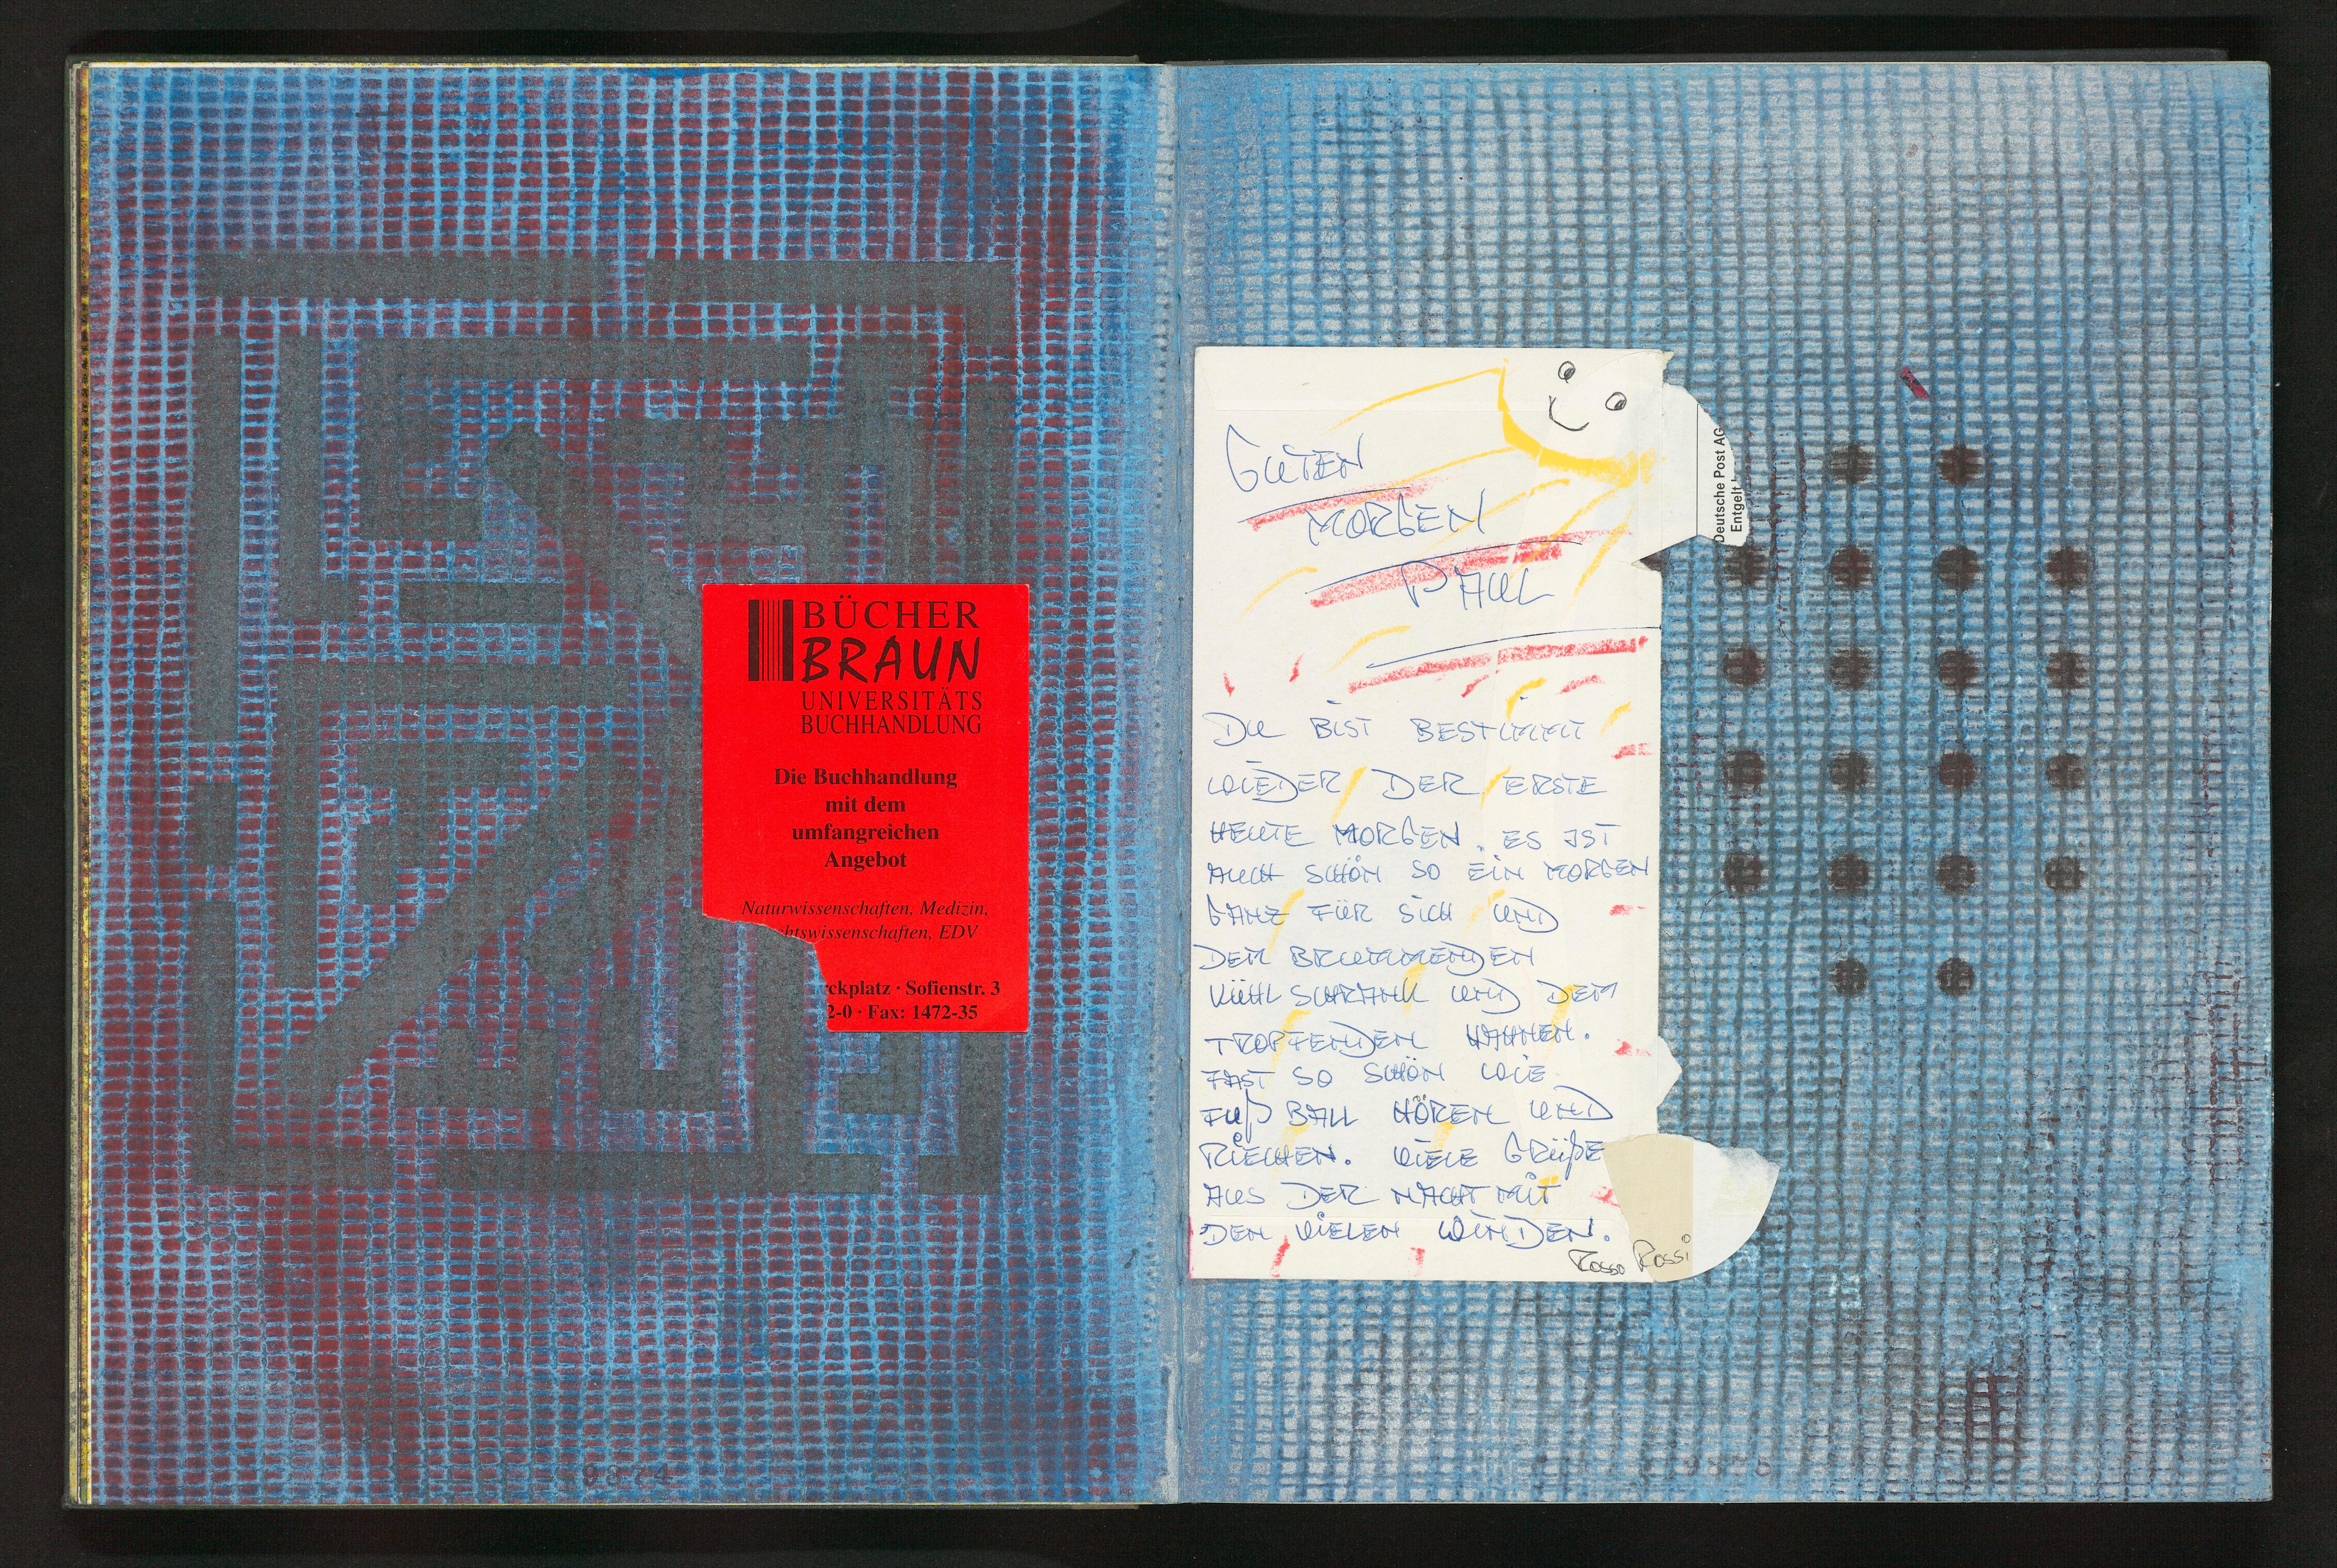 BÜCHER
BRAUN
UNIVERSITÄTS
BUCHHANDLUNG
Die Buchhandlung
mit dem
umfangreichen
Angebot
Naturwissenschaften, Medizin,
chtswissenschaften, EDV
rckplatz · Sofienstr. 3
2-0 · Fax: 1472-35
GUTEN
MORGEN
PAUL
Deutsche Post AG
Entgelt
DU BIST BESTIMMT
WIEDER DER ERSTE
HEUTE MORGEN. ES IST
AUCH SCHÖN SO EIN MORGEN
GANZ FÜR SICH UND
DEN BRUMMENDEN
KÜHLSCHRANK UND DEM
TROPFENDEN HAHNEN.
FAST SO SCHÖN WIE
FUßBALL HÖREN UND
RIECHEN. VIELE GRÜßE
AUS DER NACHT MIT
DEN VIELEN WINDEN.
Rosso Rossi